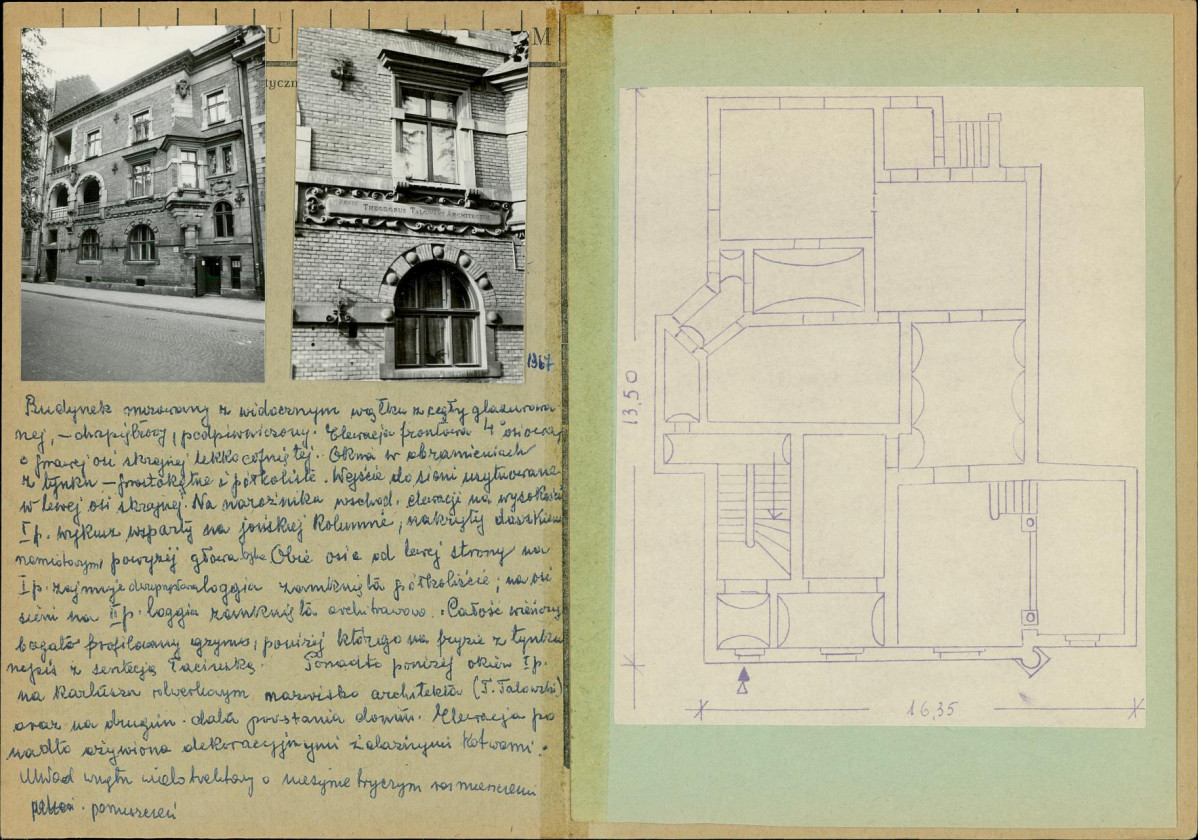 U
M
tyczn
THEODORUS TALOWSKI ARCHITECTUS
1967
Budynek murowany z widocznym wątku z cegły glazurowa
nej, – dwupiętrowy, podpiwniczony. Elewacja frontowa 4 osiowa,
o prawej osi skrajnej lekko cofniętej. Okna w obramieniach
z tynku – prostokątne i półkoliste. Wejście do sieni usytuowane
w lewej osi skrajnej. Na narożniku wschod. elewacji na wysokości
I p. wykusz wsparty na jońskiej kolumnie, nakryty daszkiem
namiotowym powyżej głowa Obie osie od lewej strony na
I p. zajmuje dwuprzęsłowa loggia zamknięta półkoliście; na osi
sieni na II p. loggia zamknięta architrawowo. Całość wieńczy
bogato profilowany gzyms, poniżej którego na fryzie z tynku
napis z sentecją łacińską. Ponadto poniżej okien I p.
na kartuszu rolwerkowym nazwisko architekta (T. Talowski)
oraz na drugim data powstania domu. Elewacja po
nadto ożywiona dekoracyjnymi żelaznymi kotwami.
Układ wnętrz wielotraktowy o niesymetrycznym rozmieszczeniu
pomieszczeń
13,50
16,35